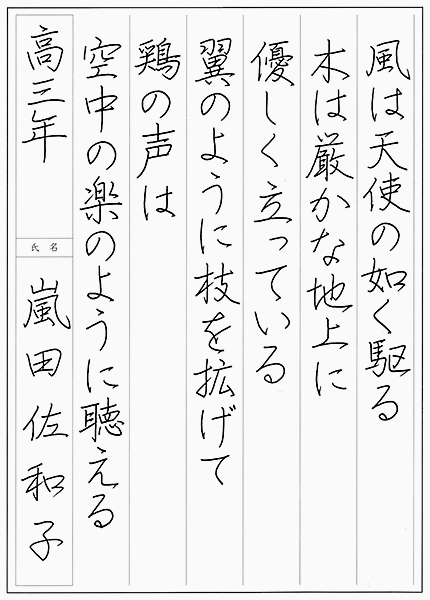 風は天使の如く駆る
木は厳かな地上に
優しく立っている
翼のように枝を拡げて
鶏の声は
空中の楽のように聴える
高三年
氏名
嵐田佐和子